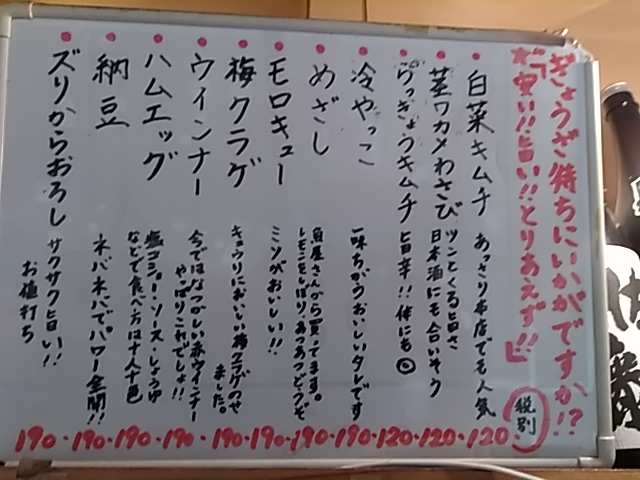 ぎょうざ待ちにいかがですか!?
★「安い!!旨い!!とりあえず!!」
税別
● 白菜キムチ あっさり本店でも人気 120
● 茎ワカメわさび ツンとくる旨さ
日本酒にも合いそう 120
● らっきょうキムチ 旨辛!!体にも◎ 120
● 冷やっこ 一味ちがうおいしいタレです 190
● めざし 魚屋さんから買ってます。
レモンをしぼり、あつあつどうぞ 190
● モロキュー ミソがおいしい!! 190
● 梅クラゲ キュウリにおいしい梅クラゲのせ
ました。 190
● ウインナー 今ではなつかしい赤ウインナー
やっぱりこれでしょ!! 190
● ハムエッグ 塩コショー・ソース・しょうゆ
などで食べ方は十人十色 190
● 納豆 ネバネバでパワー全開!! 190
● ズリからおろし サクサク旨い!!
お値打ち 190